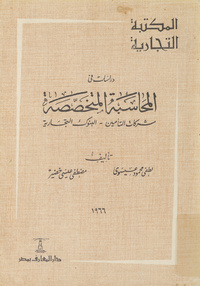 المكتبة
التجارية
دراسات في
المحاسبة المتخصصة
شركات التأمين - البنوك التجارية
تأليف
لطفي محمود
مصطفى عيسى خضير
١٩٦٦
دار المعارف بمصر